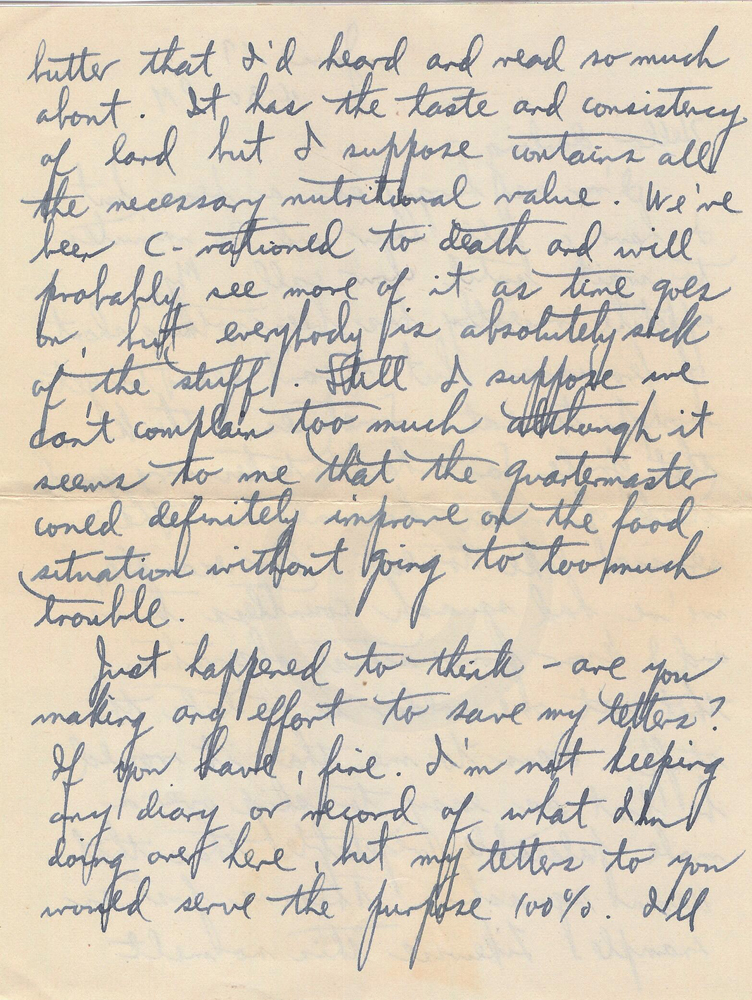 butter that I'd heard and read so much
about. It has the taste and consistency
of lard but I suppose contains all
the necessary nutritional value. We've
been C-rationed to death and will
probably see more of it as time goes
on, but everybody is absolutely sick
of the stuff. Still I suppose we
can't complain too much although it
seems to me that the quartermaster
coued definitely improve on the food
situation without going to too much
trouble.
Just happened to think - are you
making any effort to save my letters?
If you have, fine. I'm not keeping
any diary or record of what I'm
doing over here, but my letters to you
would serve the purpose 100%. I'll